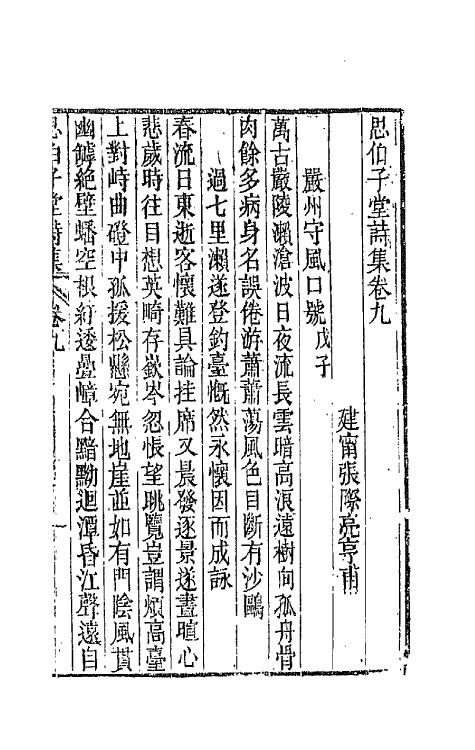 思伯子堂詩集卷九
建甯張際亮亨甫
嚴州守風口號戊子
萬古嚴陵瀨滄波日夜流長雲暗高浪遠樹向孤舟骨
肉餘多病身名誤倦游蕭蕭蕩風色目斷有沙鷗
過七里瀨遂登釣臺慨然永懷因而成詠
春流日東逝客懷難具論挂席又晨發逐景遂晝暄心
悲歲時往目想英畸存嶔岑忽悵望眺覽豈謂煩高臺
上對峙曲磴中孤援松懸宛無地崖並如有門陰風貫
幽罅絶壁蟠空根紆逶疊嶂合黯黝迴潭昏江聲遠自
思伯子堂詩集 卷九